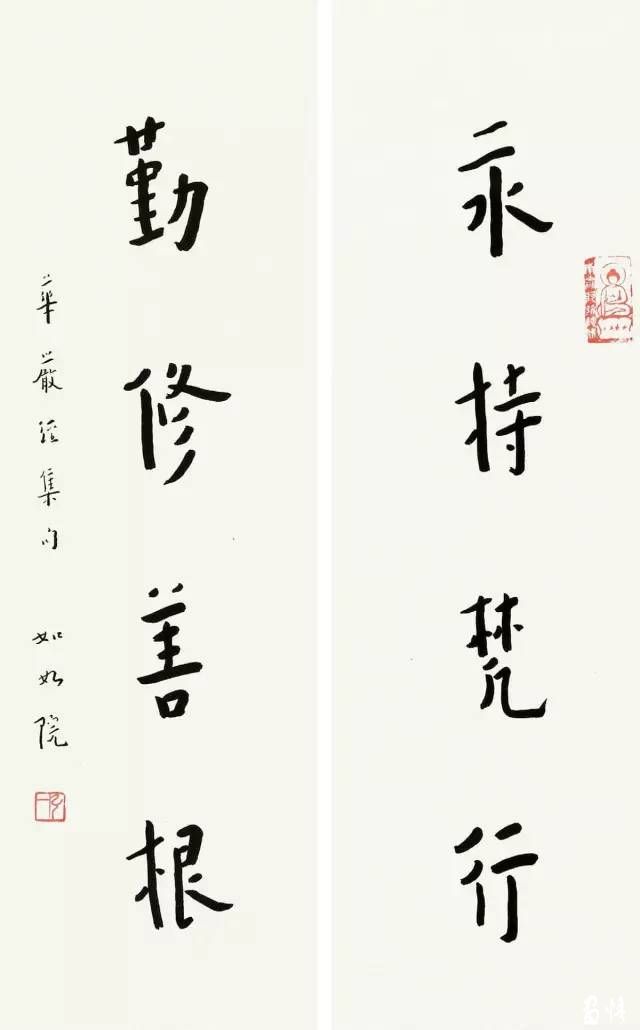 永持梵行
勤修善根
華嚴經集句 如如院